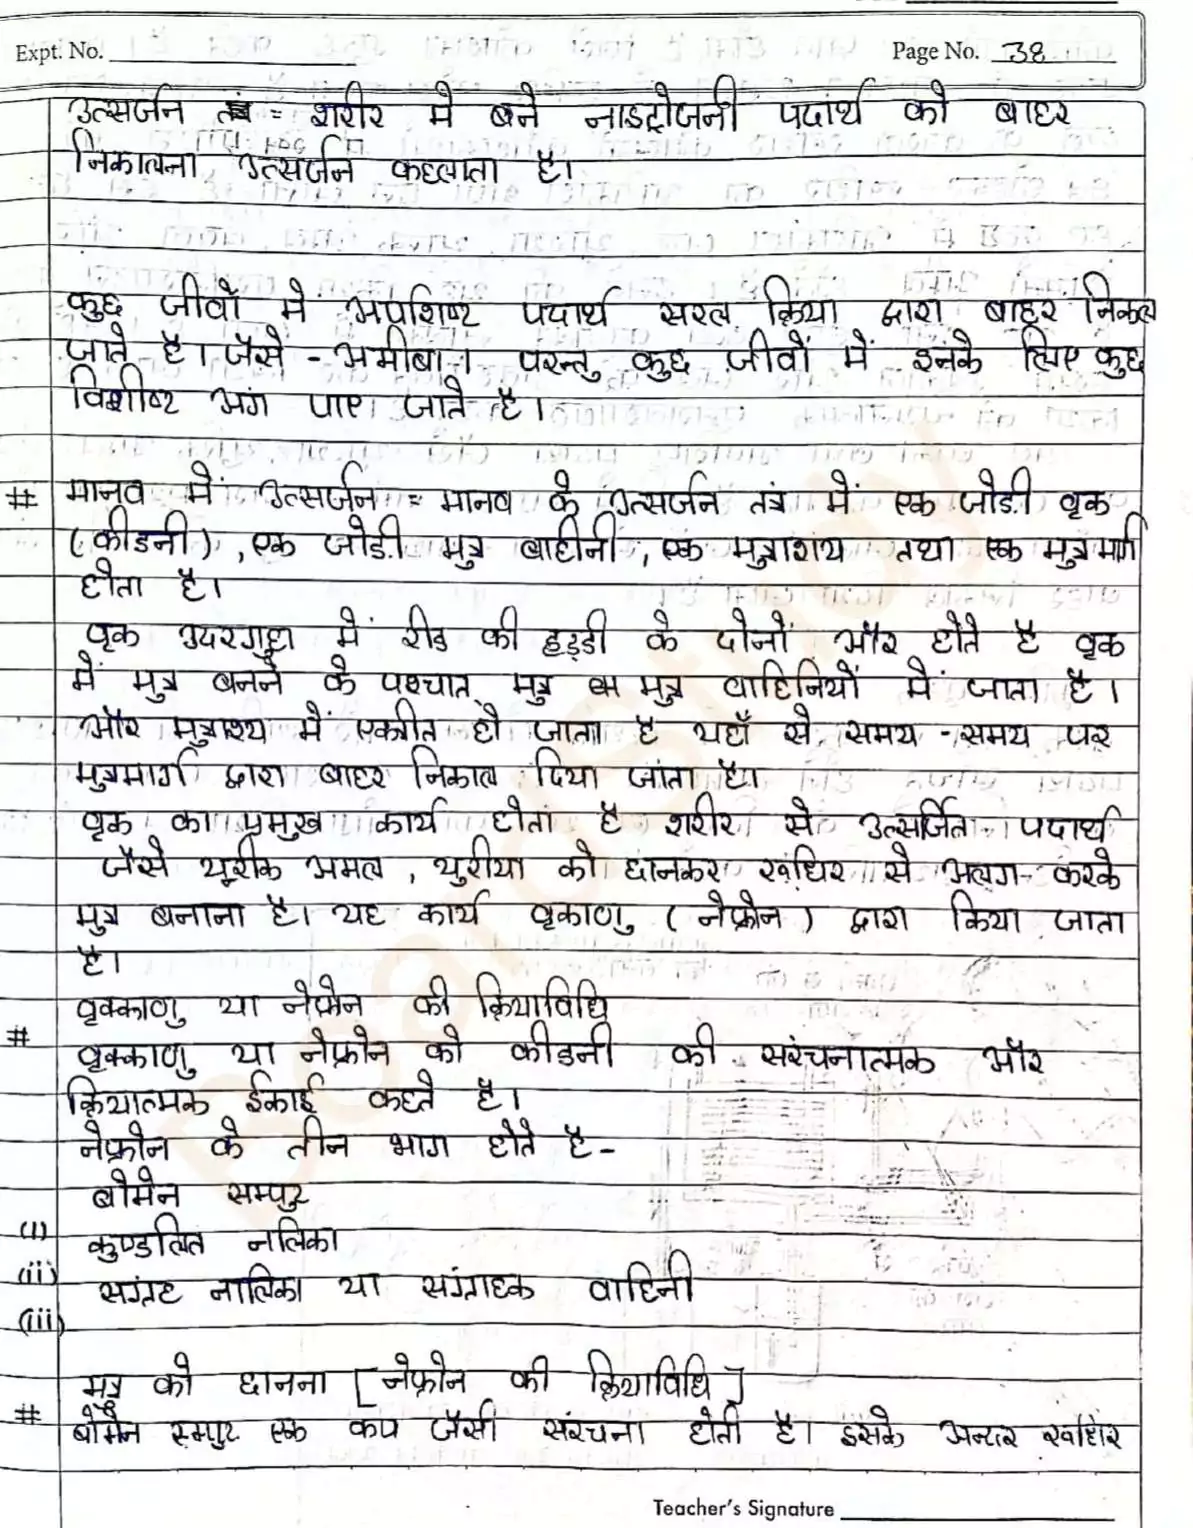 Expt. No.
Page No. 38
उत्सर्जन तंत्र = शरीर मे बने नाइट्रोजनी पदार्थ को बाहर
निकालना उत्सर्जन कहलाता है।
कुछ जीवों मे अपशिष्ट पदार्थ सरल क्रिया द्वारा बाहर निकल
जाते है। जैसे - अमीबा। परन्तु कुछ जीवों में इनके लिए कुछ
विशीष्ट अंग पाए जाते है।
# मानव मे उत्सर्जन = मानव के उत्सर्जन तंत्र में एक जोडी वृक
(कीडनी), एक जोडी मुत्र बाहीनी, एक मुत्राशय तथा एक मुत्रमार्ग
होता है।
वृक उदरगुहा में रीड की हड्डी के दोनों और होते है वृक
में मुत्र बनने के पश्चात मुत्र मुत्र वाहिनियों में जाता है।
और मुत्राश्य में एकत्रीत हो जाता है यहाँ से समय - समय पर
मुत्रमार्ग द्वारा बाहर निकाल दिया जाता है।
वृक का प्रमुख कार्य होता है शरीर से उत्सर्जित पदार्थ
जैसे यूरीक अमल, युरीया को छानकर रूधिर से अलग करके
मुत्र बनाना है। यह कार्य वृकाणु (नेफ्रोन) द्वारा किया जाता
है।
वृक्काणु या नेफ्रोन की क्रियाविधि
# वृक्काणु या नेफ्रोन को कीडनी की सरंचनात्मक और
क्रियात्मक ईकाई कहते है।
नेफ्रोन के तीन भाग होते है-
बोमेन सम्पुट
(i) कुण्डलित नलिका
(ii) सग्रंह नालिका या संग्राहक वाहिनी
(iii)
मुत्र को छानना [नेफ्रोन की क्रियाविधि]
# बोमेन सम्पुट एक कप जैसी संरचना होती है। इसके अन्दर रूधिर
Teacher's Signature